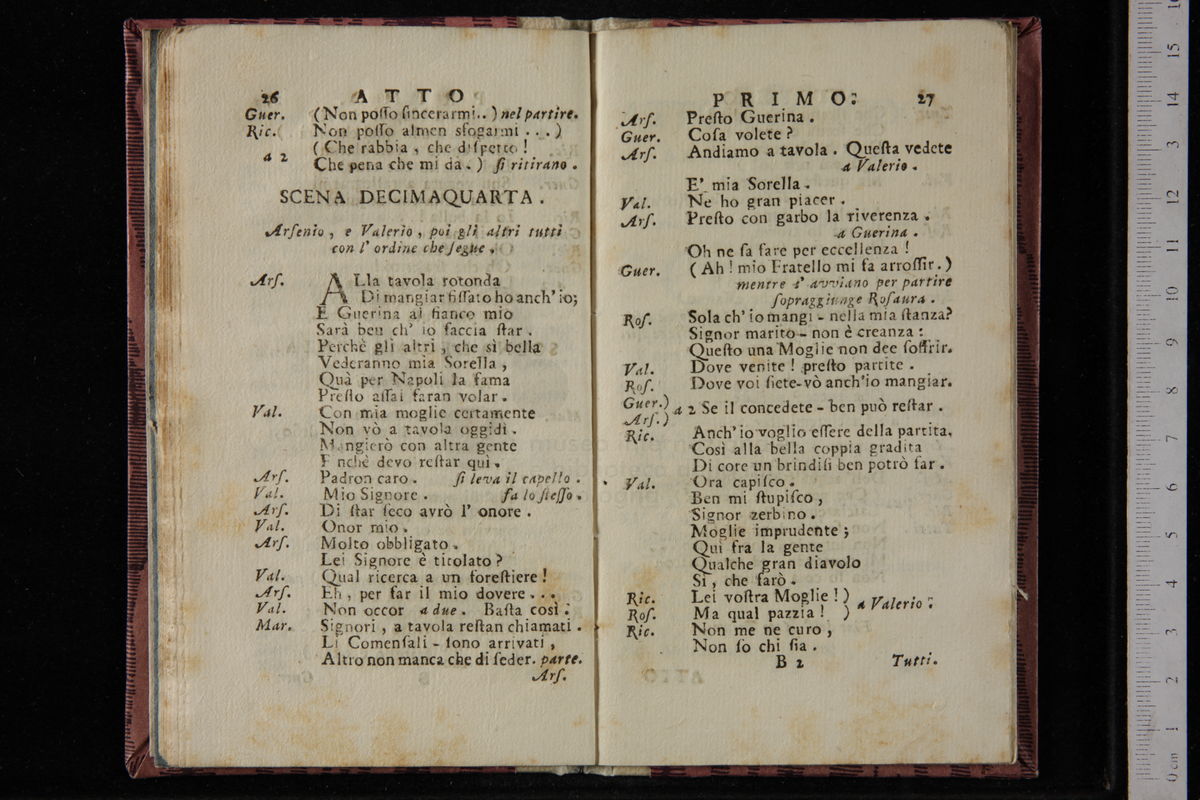 26 ATTO
Guer. (Non poſſo ſincerarmi.. ) nel partire.
Ric. Non poſſo almen sfogarmi . . . )
a 2 ( Che rabbia , che diſpetto !
Che pena che mi dà . ) ſi ritirano .
SCENA DECIMAQUARTA .
Arſenio , e Valerio , poi gli altri tutti
con l' ordine che ſegue .
Arſ. ALla tavola rotonda
Di mangiar fiſſato ho anch' io;
E Guerina al fianco mio
Sarà ben ch' io faccia ſtar .
Perchè gli altri , che sì bella
Vederanno mia Sorella ,
Quà per Napoli la fama
Preſto aſſai faran volar .
Val. Con mia moglie certamente
Non vò a tavola oggidì .
Mangierò con altra gente
Finchè devo reſtar quì .
Arſ. Padron caro . ſi leva il capello .
Val. Mio Signore . fa lo ſteſſo .
Arſ. Di ſtar ſeco avrò l' onore .
Val. Onor mio .
Arſ. Molto obbligato .
Lei Signore è titolato ?
Val. Qual ricerca a un foreſtiere !
Arſ. Eh , per far il mio dovere . . .
Val. Non occor a due . Baſta così .
Mar. Signori , a tavola reſtan chiamati .
Li Comenſali - ſono arrivati ,
Altro non manca che di ſeder. parte.
Arſ.
PRIMO: 27
Arſ. Preſto Guerina .
Guer. Coſa volete ?
Arſ. Andiamo a tavola . Queſta vedete
a Valerio .
E' mia Sorella .
Val. Ne ho gran piacer .
Arſ. Preſto con garbo la riverenza .
a Guerina .
Oh ne ſa fare per eccellenza !
Guer. ( Ah ! mio Fratello mi fa arroſſir. )
mentre s' avviano per partire
ſopraggiunge Roſaura .
Roſ. Sola ch' io mangi - nella mia ſtanza?
Signor marito - non è creanza :
Queſto una Moglie non dee ſoffrir.
Val. Dove venite ! preſto partite .
Roſ. Dove voi ſiete-vò anch'io mangiar.
Guer.)
a 2 Se il concedete - ben può reſtar .
Arſ.)
Ric. Anch' io voglio eſſere della partita.
Così alla bella coppia gradita
Di core un brindiſi ben potrò far .
Val. Ora capiſco .
Ben mi ſtupiſco ,
Signor zerbino .
Moglie imprudente ;
Qui fra la gente
Qualche gran diavolo
Sì , che farò .
Ric. Lei voſtra Moglie ! )
a Valerio :
Roſ. Ma qual pazzia ! )
Ric. Non me ne curo ,
Non ſo chi ſia .
B 2 Tutti.